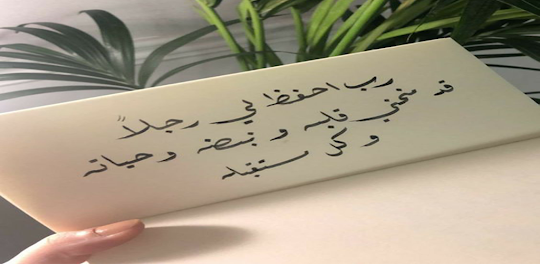 رب احفظ لي رجلاً
قد منحني قلبه و نبضه و حياته
و كل مستقبله